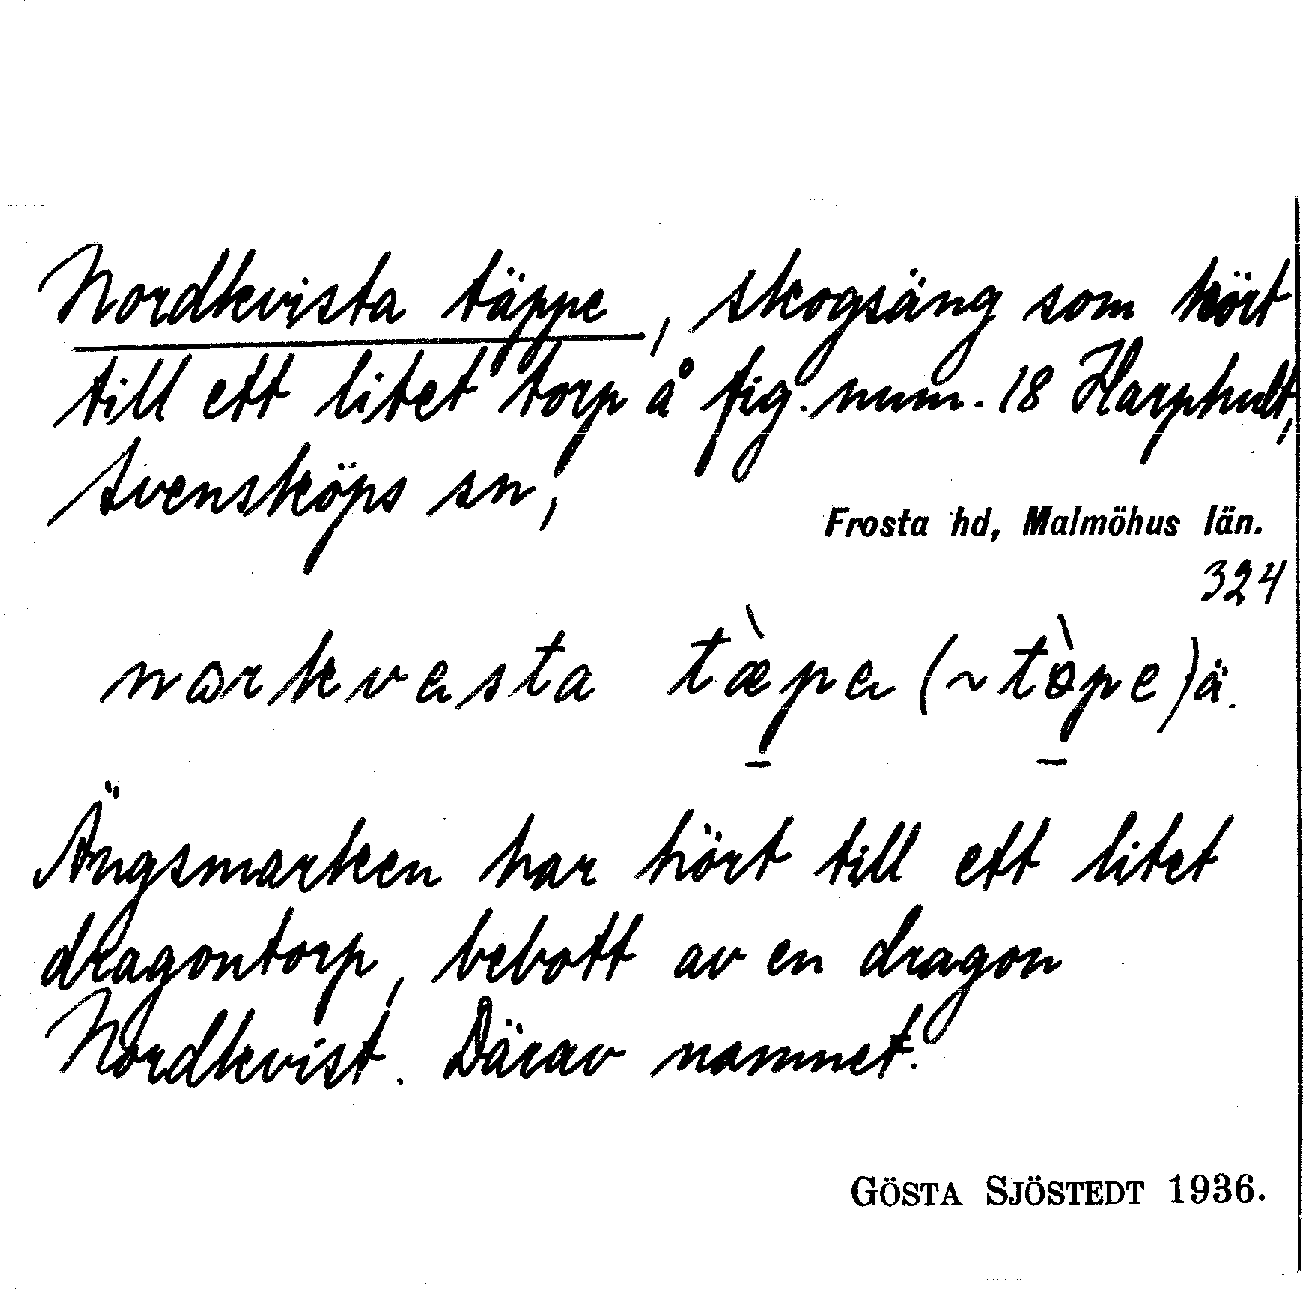 Nordkvista täppe, skogsäng som hört
till ett litet torp å fig. num. 18 Harphult,
Svensköps sn,
Frosta hd, Malmöhus län.
324
narkvesta tæ̀pe (~tòpe) ä.
Ängsmarken har hört till ett litet
dragontorp, bebott av en dragon
Nordkvist. Därav namnet.
GÖSTA SJÖSTEDT 1936.